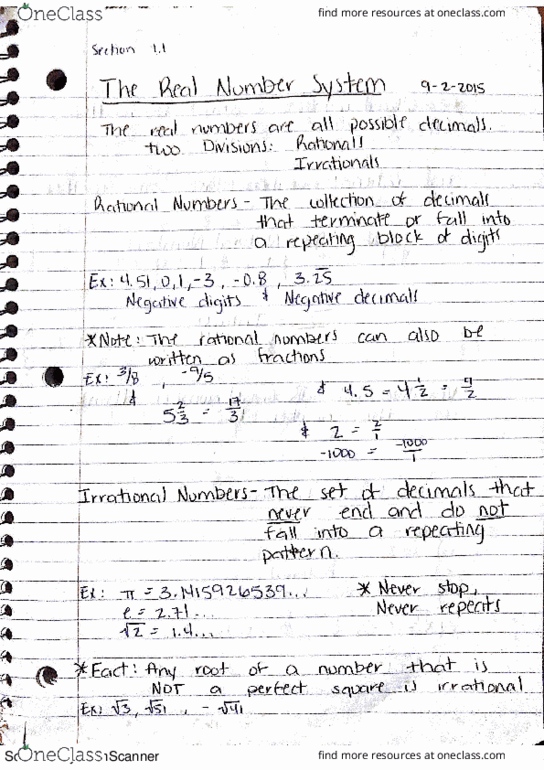 OneClass
find more resources at oneclass.com
Section 1.1
The Real Number System 9-2-2015
The real numbers are all possible decimals.
two Divisions: Rationals
Irrationals
Rational Numbers - The collection of decimals
that terminate or fall into
a repeating block of digits
Ex: 4.51, 0, 1, -3, -0.8, 3.2̅5̅
Negative digits & Negative decimals
*Note: The rational numbers can also be
written as fractions
Ex: 3/8, -9/5
& 5 2/3 = 17/3
& 4.5 = 4 1/2 = 9/2
& 2 = 2/1
-1000 = -1000/1
Irrational Numbers - The set of decimals that
never end and do not
fall into a repeating
pattern.
Ex: π = 3.1415926539... * Never stop,
e = 2.71... Never repeats
√2 = 1.4...
*Fact: Any root of a number that is
NOT a perfect square is irrational
Ex: √3, √51, -√41
OneClass
Scanner
find more resources at oneclass.com